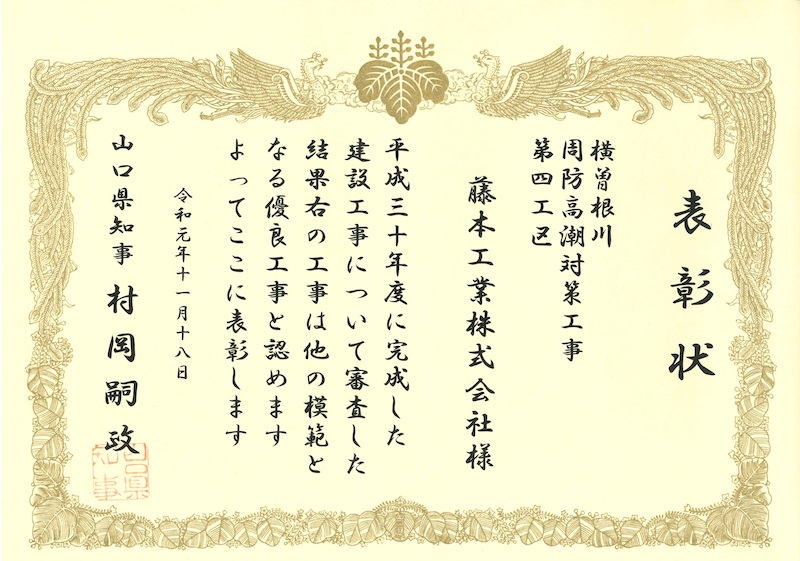 表彰状
横曽根川
周防高潮対策工事
第四工区
藤本工業株式会社様
平成三十年度に完成した
建設工事について審査した
結果右の工事は他の模範と
なる優良工事と認めます
よってここに表彰します
令和元年十一月十八日
山口県知事 村岡嗣政
山口県知事